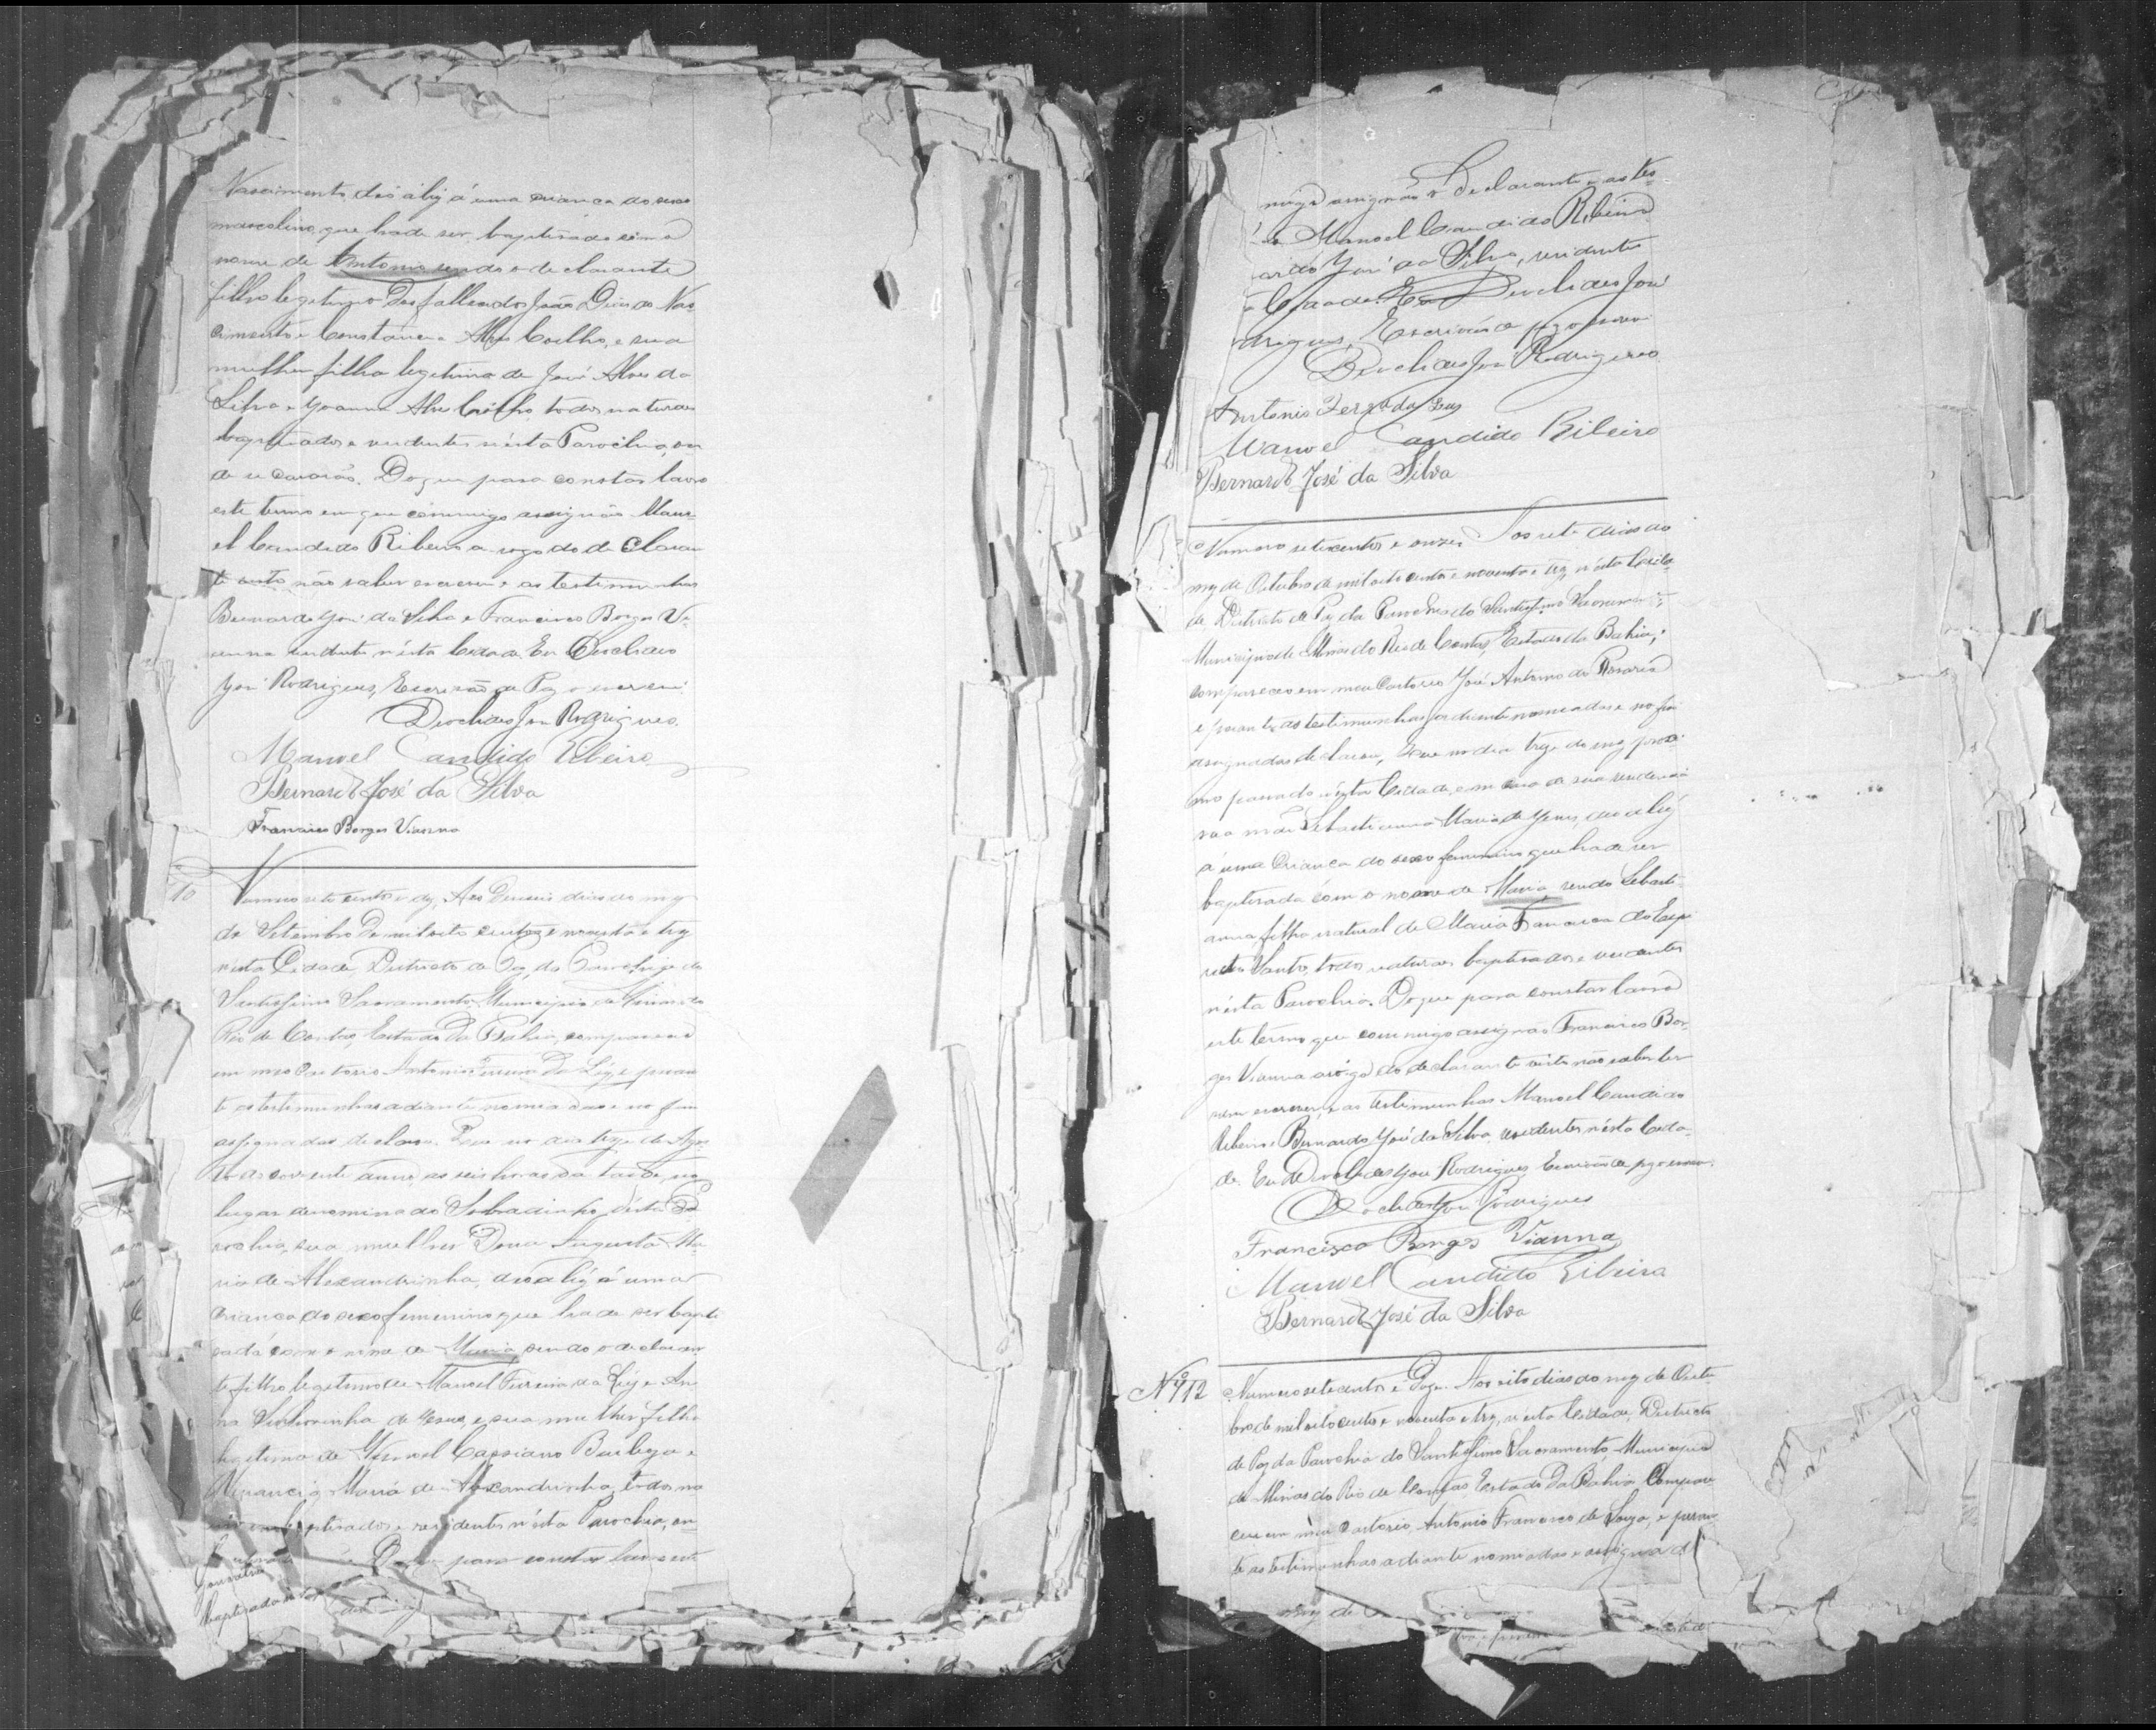 Nascimento, deo á luz á uma criança do sexo
masculino, que hade ser baptisado com o
nome de Antonio, sendo o declarante
filho legitimo dos fallecidos João Dias do Nas-
cimento e Constancia Alves Coelho, e sua
mulher filha legitima de José Alves da
Silva e Joanna Alves Coelho, todos naturaes
baptisados e residentes n'esta Parochia, on-
de se casarão. Do que para constar lavro
este termo em que commigo assignão Mano-
el Candido Ribeiro a rogo do declaran-
te visto não saber escrever e as testimunhas
Bernardo José da Silva e Francisco Borges Vi-
anna residentes n'esta Cidade. Eu Diochdes
José Rodrigues, Escrivão de Paz o escrevi
Diochdes José Rodrigues
Manoel Candido Ribeiro
Bernardo José da Silva
Francisco Borges Vianna
10
Numero sete centos e dez. Aos dias do mez
de Setembro de mil oito centos e noventa e trez
nesta Cidade, Districto de Paz da Parochia do
Santissimo Sacramento, Municipio de Minas do
Rio de Contas, Estado da Bahia, compareceo
em meo Cartorio Antonio Ferreira da Luz, e peran-
te as testimunhas adiante nomeadas e no fim
assignadas, declarou: Que no dia treze de Agos-
to do corrente anno, as seis horas da tarde, no
lugar denominado Sobradinho, d'esta Pa-
rochia, sua mulher Dona Augusta Ma-
ria de Alexandrinha, deo a luz á uma
criança do sexo femenino que hade ser bapti-
sada com o nome de Maria sendo o declaran-
te filho legitimo de Manoel Ferreira da Luz e An-
na de Jesus, e sua mulher filha
legitima de Manoel Cassiano e
Maria de Alexandrinha, todos na-
baptisados e residentes n'esta Parochia, on-
para constar lavro este
baptisado
migo assignão o declarante e as tes-
Manoel Candido Ribeiro
ardo José da Silva, residentes
Cidade. Eu Diochdes José
drigues, Escrivão de paz o escrevi
Diochdes José Rodrigues
Antonio Ferra da Luz
Manoel Candido Ribeiro
Bernardo José da Silva
Numero setecentos e onze. Aos sete dias do
mez de Outubro de mil oito centos e noventa e trez, n'esta Cida-
de, Districto de Paz da Parochia do Santissimo Sacramento
Municipio de Minas do Rio de Contas, Estado da Bahia,
compareceo em meu Cartorio José Antonio do Rosario
e perante as testimunhas adiante nomeadas e no fim
assignadas declarou, Que no dia treze do mez proxi-
mo passado n'esta Cidade, e em casa de sua residencia
sua mãe Sebastianna Maria de Jesus, deo a luz
a uma criança do sexo femenino que hade ser
baptisada com o nome de Maria sendo Sebasti-
anna, filha natural de Maria Francisca do Espi-
rito Santo, todos naturaes baptisados e residentes
n'esta Parochia. Do que para constar lavro
este termo que commigo assignão Francisco Bor-
ges Vianna a rogo do declarante visto não saber ler
nem escrever, e as testimunhas Manoel Candido
Ribeiro e Bernardo José da Silva, residentes n'esta Cida-
de. Eu Diochdes José Rodrigues Escrivão de paz o escrevi.
Diochdes José Rodrigues
Francisco Borges Vianna
Manoel Candido Ribeiro
Bernardo José da Silva
Nº 712
Numero setecentos e Doze. Aos oito dias do mez de Outu-
bro de mil oito centos e noventa e trez, n'esta Cidade, Districto
de Paz da Parochia do Santissimo Sacramento Municipio
de Minas do Rio de Contas Estado da Bahia Compare-
ceu em meu cartorio, Antonio Francisco de Souza, e peran-
te as testimunhas adiante nomeadas e assignad
mez de